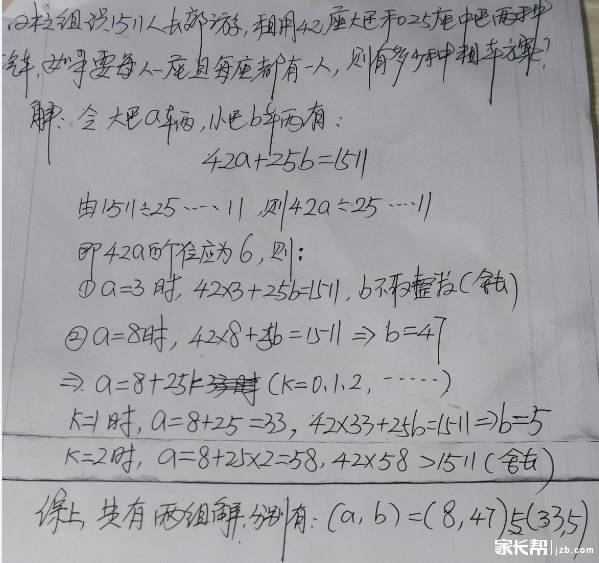 学校组织1511人去郊游,租用42座大巴和25座中巴两种
汽车,如果要每人一座且每座都有一人,则有多少种租车方案?
解:令大巴a车两,小巴b车两有:
42a+25b=1511
由1511÷25……11,则42a÷25……11
即42a的个位应为6,则:
① a=3时,42×3+25b=1511,b不取整数(舍去)
② a=8时,42×8+25b=1511⇒b=47
⇒ a=8+25k(k=0,1,2,……)
k=1时,a=8+25=33,42×33+25b=1511⇒b=5
k=2时,a=8+25×2=58,42×58>1511(舍去)
综上,共有两组解,分别有:(a,b)=(8,47)与(33,5)
家长帮 jzb.com